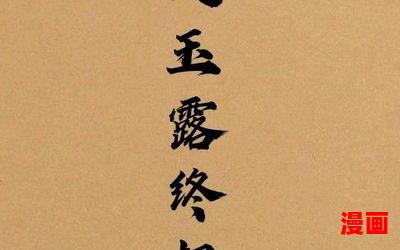 玉露终
漫画